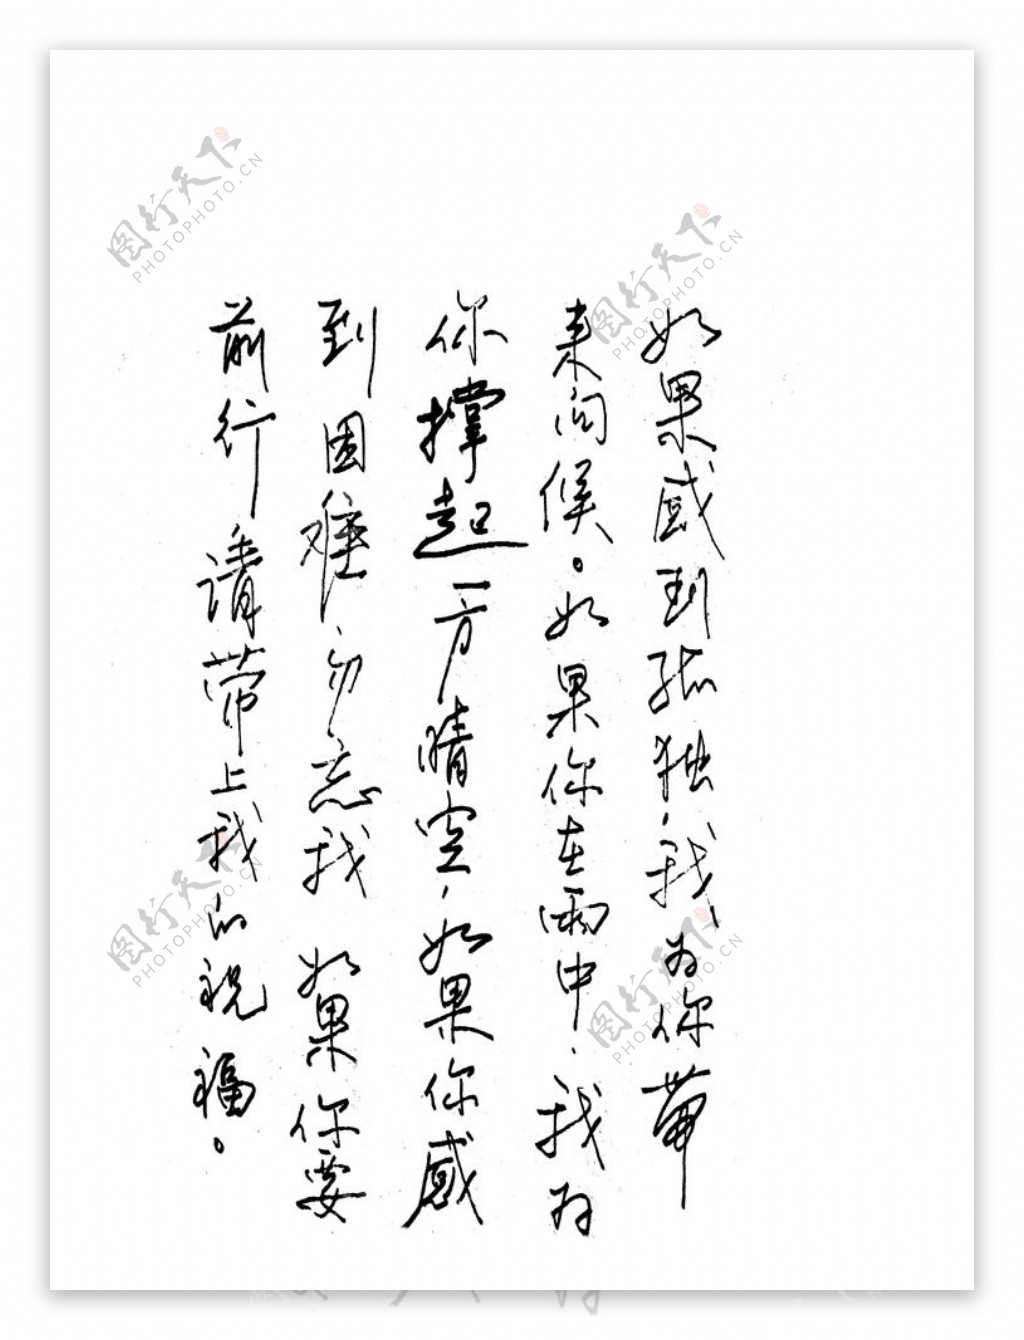 如果感到孤独，我为你带
来问候。如果你在雨中，我为
你撑起一方晴空，如果你感
到困难，勿忘我 如果你要
前行 请带上我的祝福。
图行天下
PHOTOPHOTO.CN
图行天下
PHOTOPHOTO.CN
图行天下
PHOTOPHOTO.CN
图行天下
PHOTOPHOTO.CN